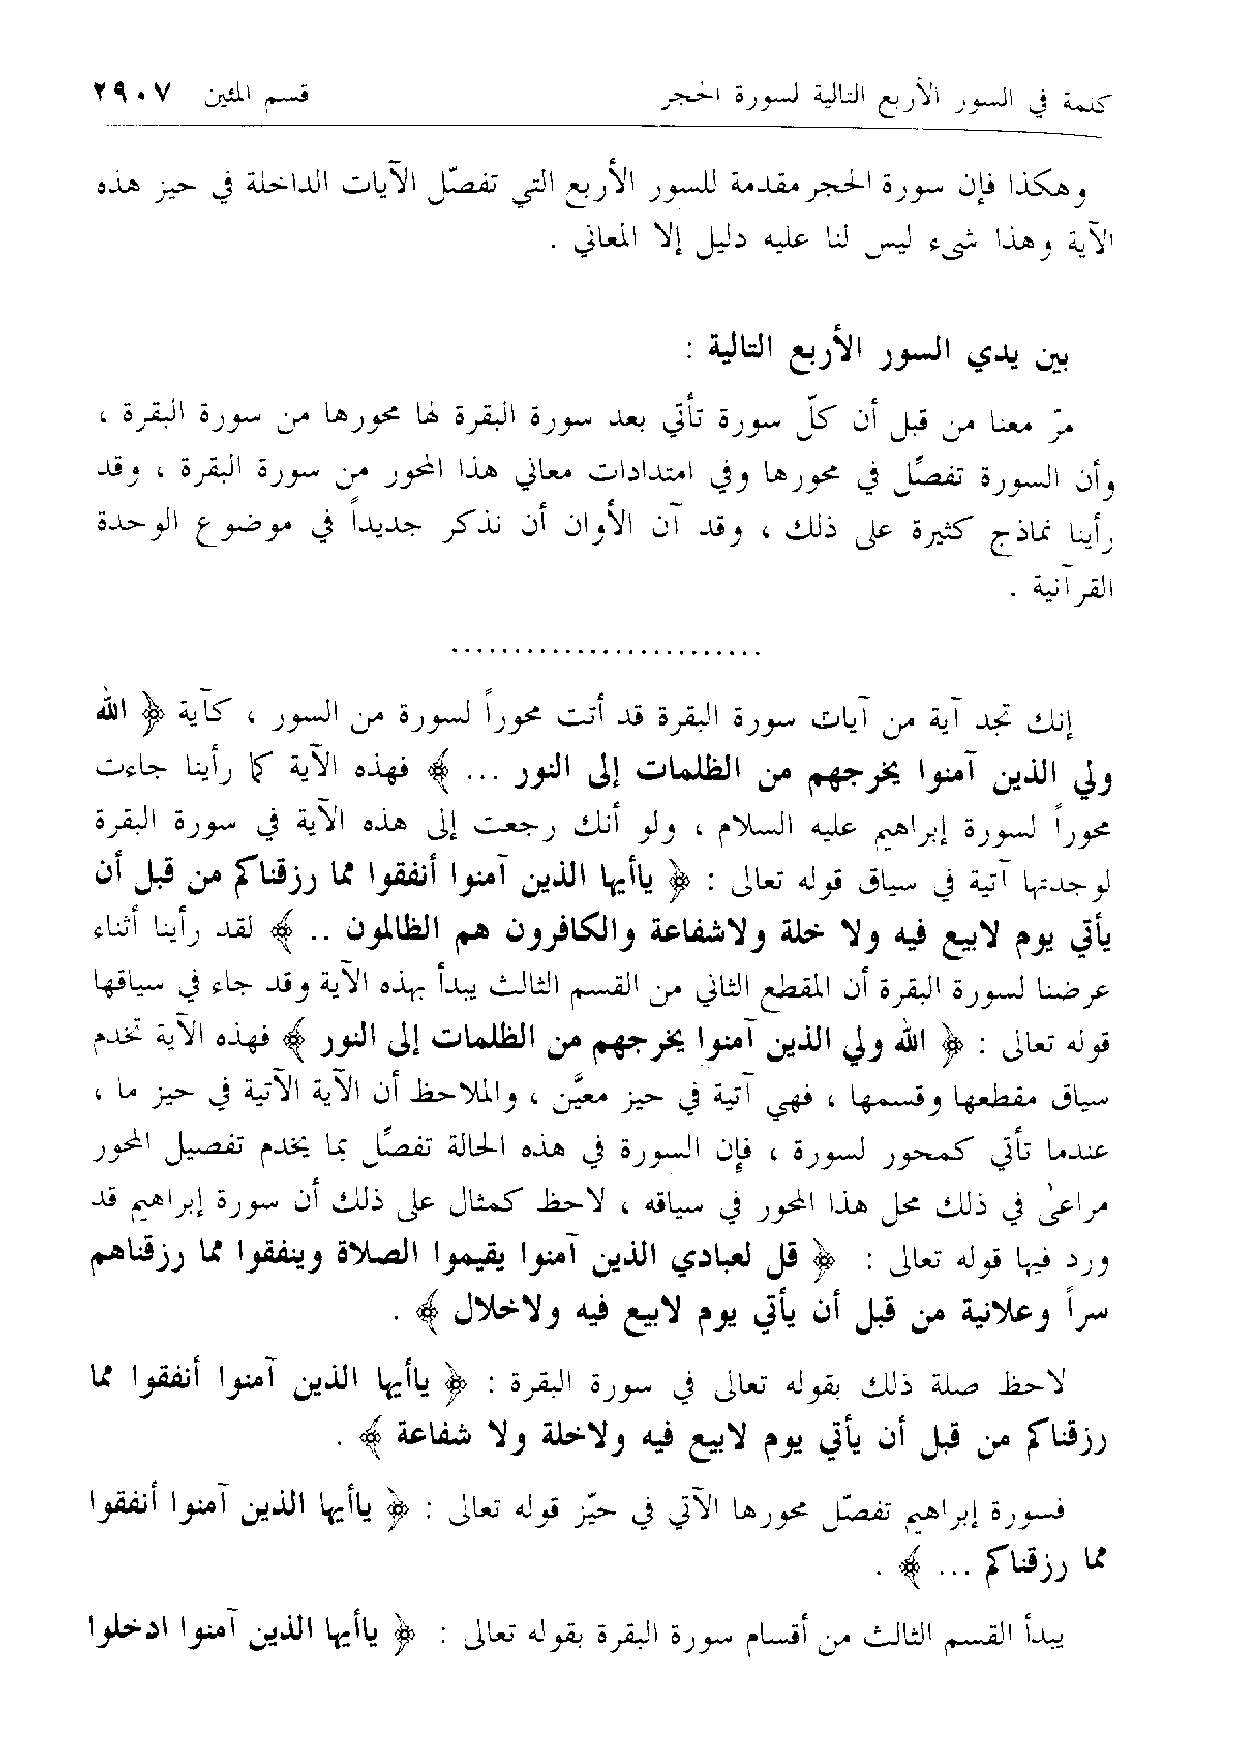 كلمة في السور الأربع التالية لسورة الحجر قسم المئين ٢٩٠٧
وهكذا فإن سورة الحجر مقدمة للسور الأربع التي تفصّل الآيات الداخلة في حيز هذه
الآية وهذا شىء ليس لنا عليه دليل إلا المعاني .
بين يدي السور الأربع التالية :
مرّ معنا من قبل أن كلّ سورة تأتي بعد سورة البقرة لها محورها من سورة البقرة ،
وأن السورة تفصّل في محورها وفي امتدادات معاني هذا المحور من سورة البقرة ، وقد
رأينا نماذج كثيرة على ذلك ، وقد آن الأوان أن نذكر جديداً في موضوع الوحدة
القرآنية .
.........................
إنك تجد آية من آيات سورة البقرة قد أتت محوراً لسورة من السور ، كآية ﴿ الله
ولي الذين آمنوا يخرجهم من الظلمات إلى النور ... ﴾ فهذه الآية كما رأينا جاءت
محوراً لسورة إبراهيم عليه السلام ، ولو أنك رجعت إلى هذه الآية في سورة البقرة
لوجدتها آتية في سياق قوله تعالى : ﴿ ياأيها الذين آمنوا أنفقوا مما رزقناكم من قبل أن
يأتي يوم لابيع فيه ولا خلة ولاشفاعة والكافرون هم الظالمون .. ﴾ لقد رأينا أثناء
عرضنا لسورة البقرة أن المقطع الثاني من القسم الثالث يبدأ بهذه الآية وقد جاء في سياقها
قوله تعالى : ﴿ الله ولي الذين آمنوا يخرجهم من الظلمات إلى النور ﴾ فهذه الآية تخدم
سياق مقطعها وقسمها ، فهي آتية في حيز معيّن ، والملاحظ أن الآية الآتية في حيز ما ،
عندما تأتي كمحور لسورة ، فإن السورة في هذه الحالة تفصّل بما يخدم تفصيل المحور
مراعىً في ذلك محل هذا المحور في سياقه ، لاحظ كمثال على ذلك أن سورة إبراهيم قد
ورد فيها قوله تعالى : ﴿ قل لعبادي الذين آمنوا يقيموا الصلاة وينفقوا مما رزقناهم
سراً وعلانية من قبل أن يأتي يوم لابيع فيه ولاخلال ﴾ .
لاحظ صلة ذلك بقوله تعالى في سورة البقرة : ﴿ ياأيها الذين آمنوا أنفقوا مما
رزقناكم من قبل أن يأتي يوم لابيع فيه ولاخلة ولا شفاعة ﴾ .
فسورة إبراهيم تفصّل محورها الآتي في حيّز قوله تعالى : ﴿ ياأيها الذين آمنوا أنفقوا
مما رزقناكم ... ﴾ .
يبدأ القسم الثالث من أقسام سورة البقرة بقوله تعالى : ﴿ ياأيها الذين آمنوا ادخلوا